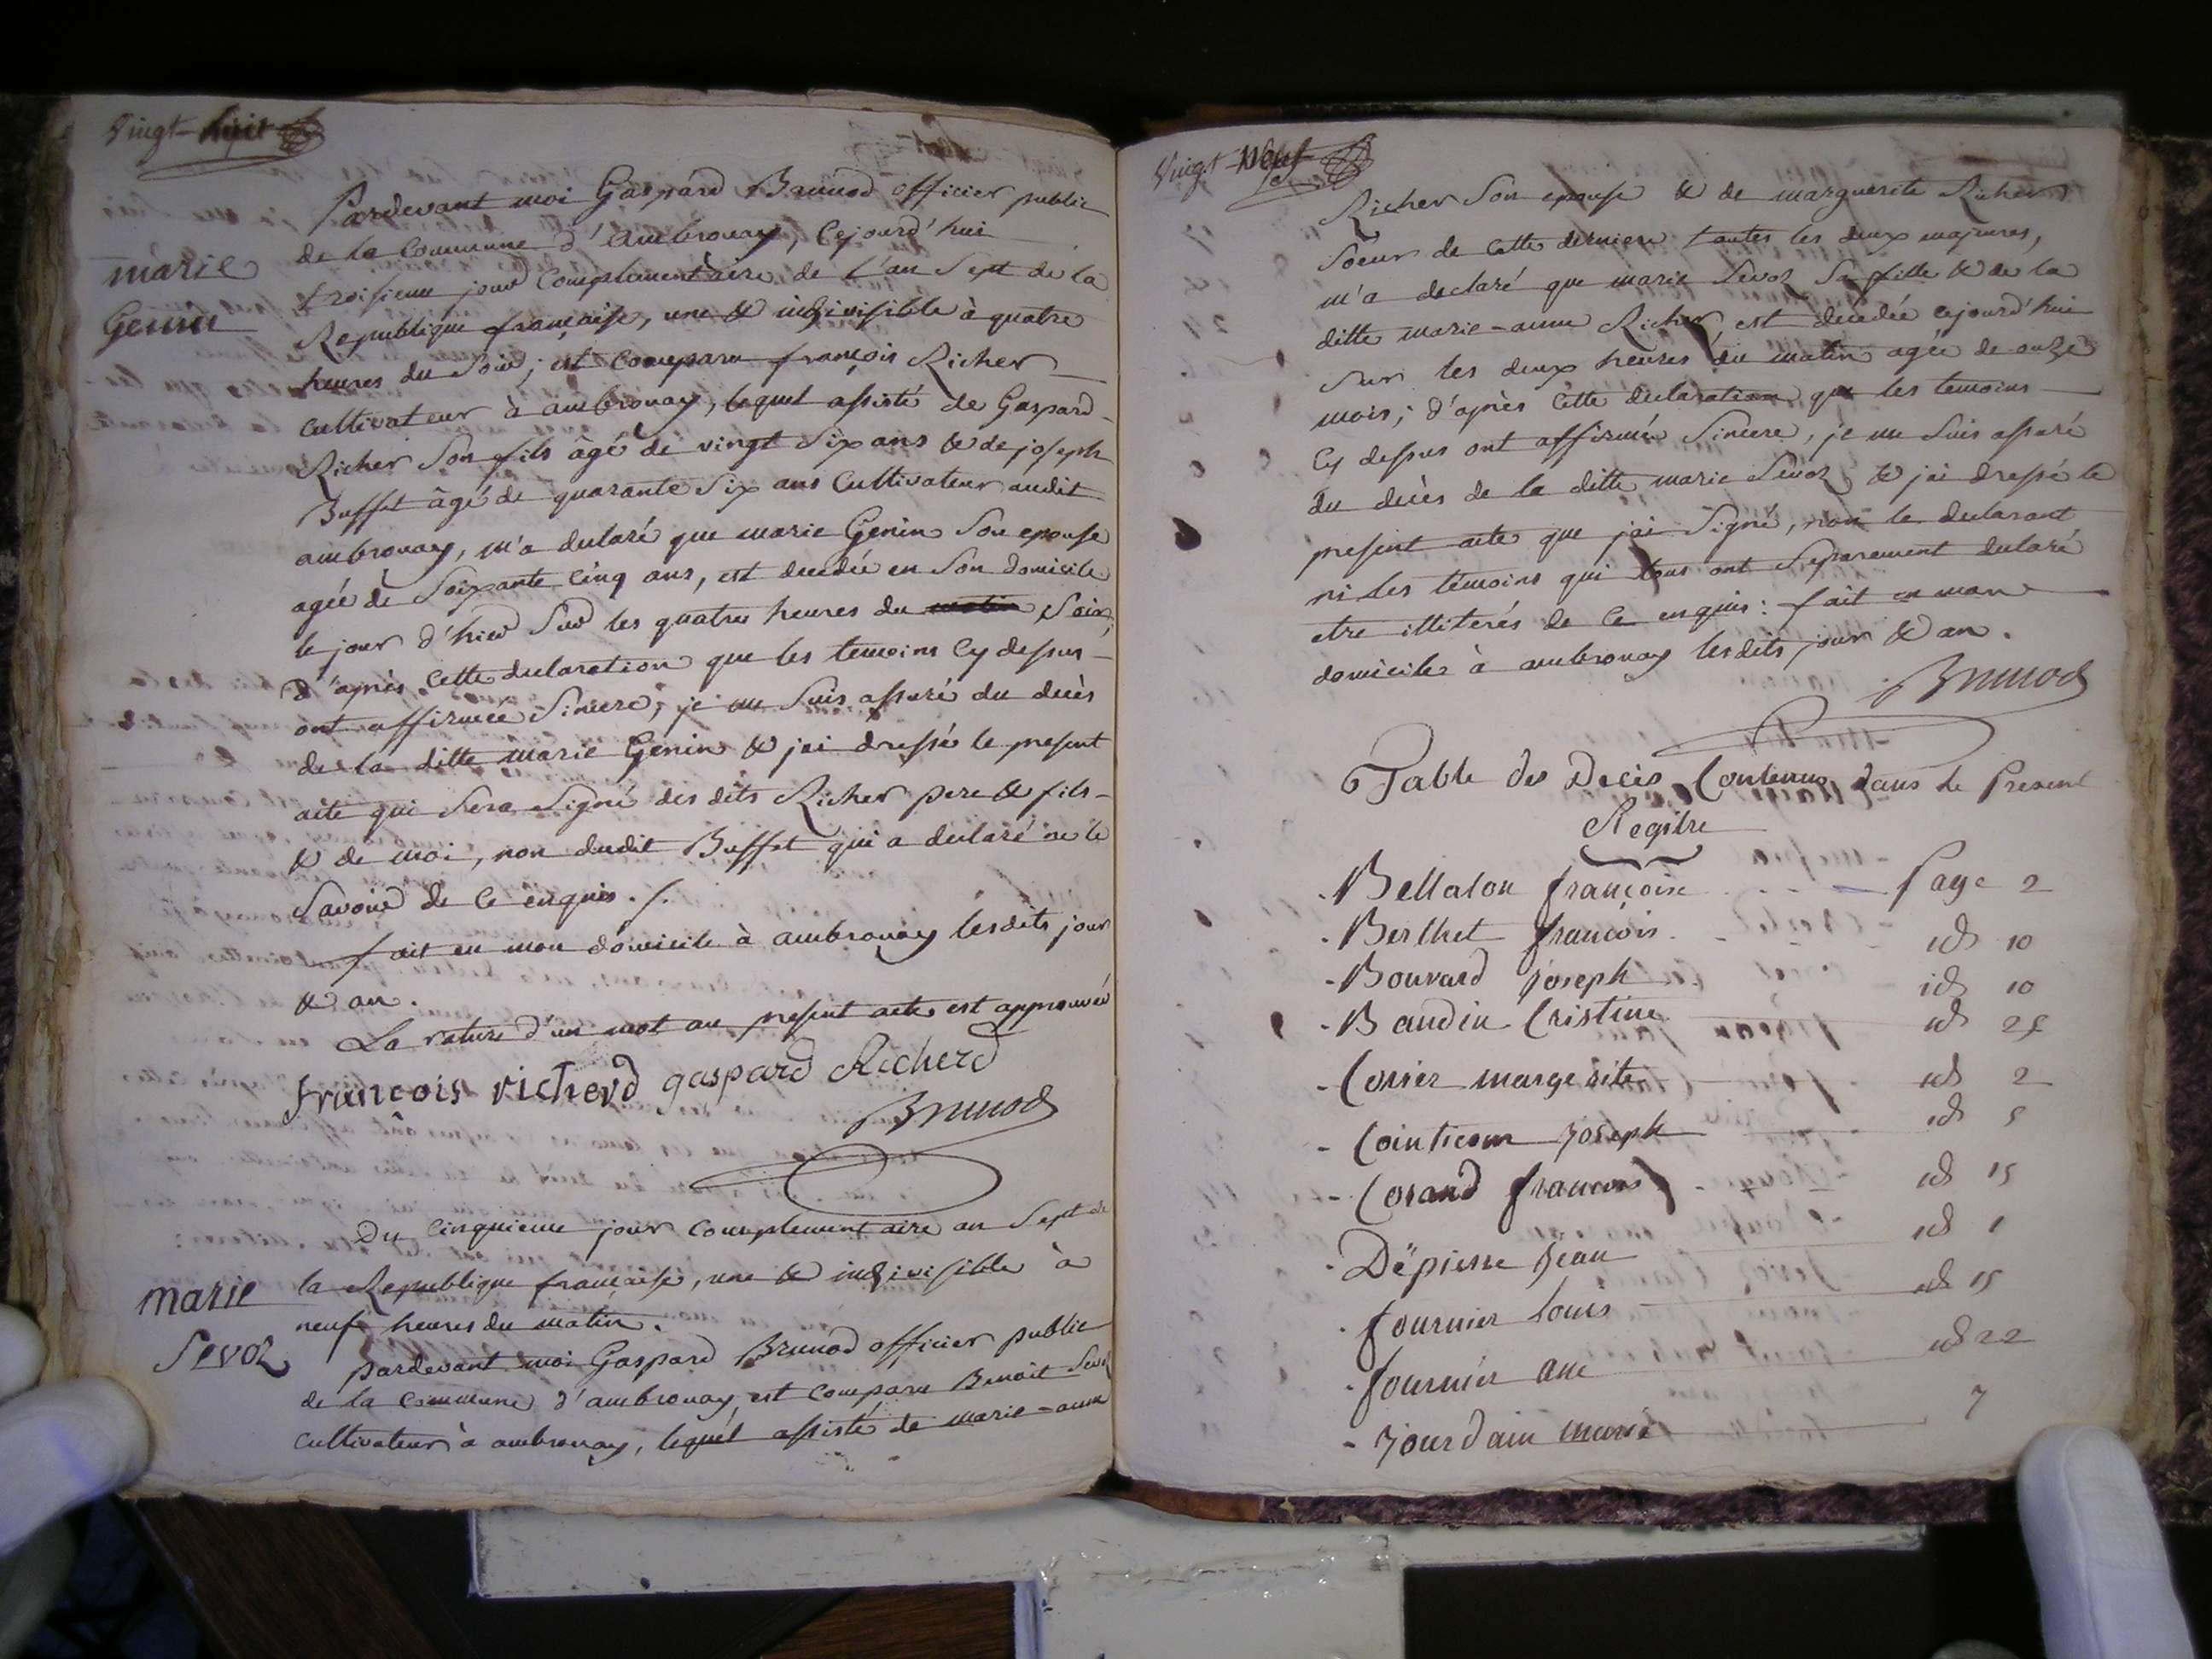 Vingt-huit
Pardevant moi Gaspard Brunod officier public
de la Commune d'ambronay, Cejourd'hui
marie
Genin
troisieme jour Complementaire de l'an Sept de la
Republique française, une & indivisible à quatre
heures du Soir; est Comparu françois Richer
Cultivateur à ambronay, lequel assisté de Gaspard
Richer Son fils âgé de vingt Six ans & de joseph
Buffet âgé de quarante Six ans Cultivateur audit
ambronay, m'a declaré que marie Genin Son epouse
agée de Soixante Cinq ans, est decedée en Son domicile
le jour d'hier Sur les quatre heures du matin Soir,
d'après Cette declaration que les temoins Cy dessus
ont affirmée Sincere, je me Suis assuré du decès
de la ditte marie Genin & jai dressé le present
acte qui Sera Signé des dits Richer pere & fils
& de moi, non dudit Buffet qui a declaré ne le
Savoir de Ce enquis ./.
fait en mon domicile à ambronay lesdits jour
& an.
La rature d'un mot au present acte est approuvée
francois richerd gaspard Richerd
Brunod
Du Cinquieme jour Complementaire an Sept de
marie
Sevoz
la Republique française, une & indivisible à
neuf heures du matin.
pardevant moi Gaspard Brunod officier public
de la Commune d'ambronay, est Comparu Benoit Sevoz
Cultivateur à ambronay, lequel assisté de marie-anne
Vingt-Neuf
Richer Son epouse & de marguerite Richer
Soeur de Cette derniere toutes les deux majeures,
m'a declaré que marie Sevoz Sa fille & de la
ditte marie-anne Richer, est decedée cejourd'hui
Sur les deux heures du matin agée de onze
mois; d'après Cette declaration que les temoins
Cy dessus ont affirmée Sincere, je me Suis assuré
du decès de la ditte marie Sevoz & jai dressé le
present acte que jai Signé, non le declarant
ni les témoins qui tous ont Separement declaré
etre illiterés de Ce enquis: fait en mon
domicile à ambronay lesdits jour & an.
Brunod
Table des Decès Contenus dans le Present
Regitre
- Bellaton françoise Page 2
- Berthet françois id 10
- Bouvard joseph id 10
- Baudin Cristine id
- Corrier margerite id 2
- Cointicour Joseph id 5
- Corand francois id 15
- Dëpierre Jean id 1
- fournier louis id 15
- fournier ane id 22
- Jourdain marie 7